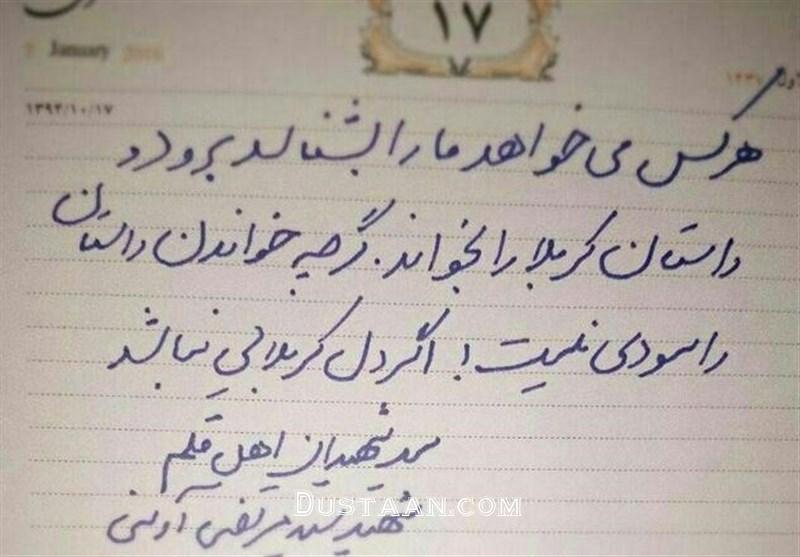 ۱۷
7 January 2016
۱۳۹۴/۱۰/۱۷
هر کس می خواهد ما را بشناسد برود و
داستان کربلا را بخواند. گرچه خواندن داستان
را سودی نیست؛ اگر دل کربلایی نباشد
سید شهیدان اهل قلم
شهید سید مرتضی آوینی
DUSTAAN.COM